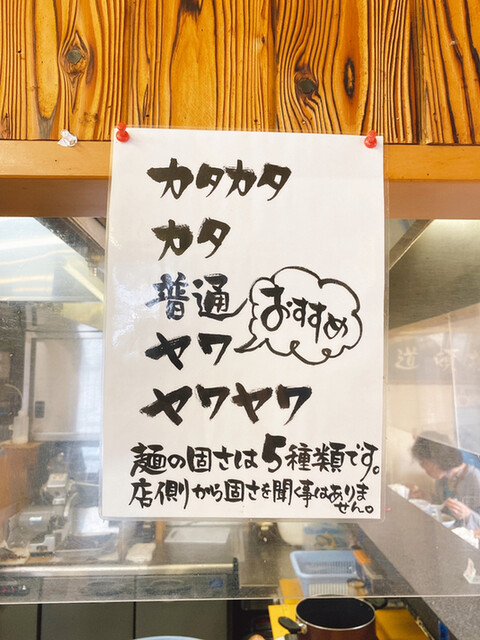 カタカタ
カタ
普通
おすすめ
ヤワ
ヤワヤワ
麺の固さは5種類です。
店側から固さを聞く事はありま
せん。